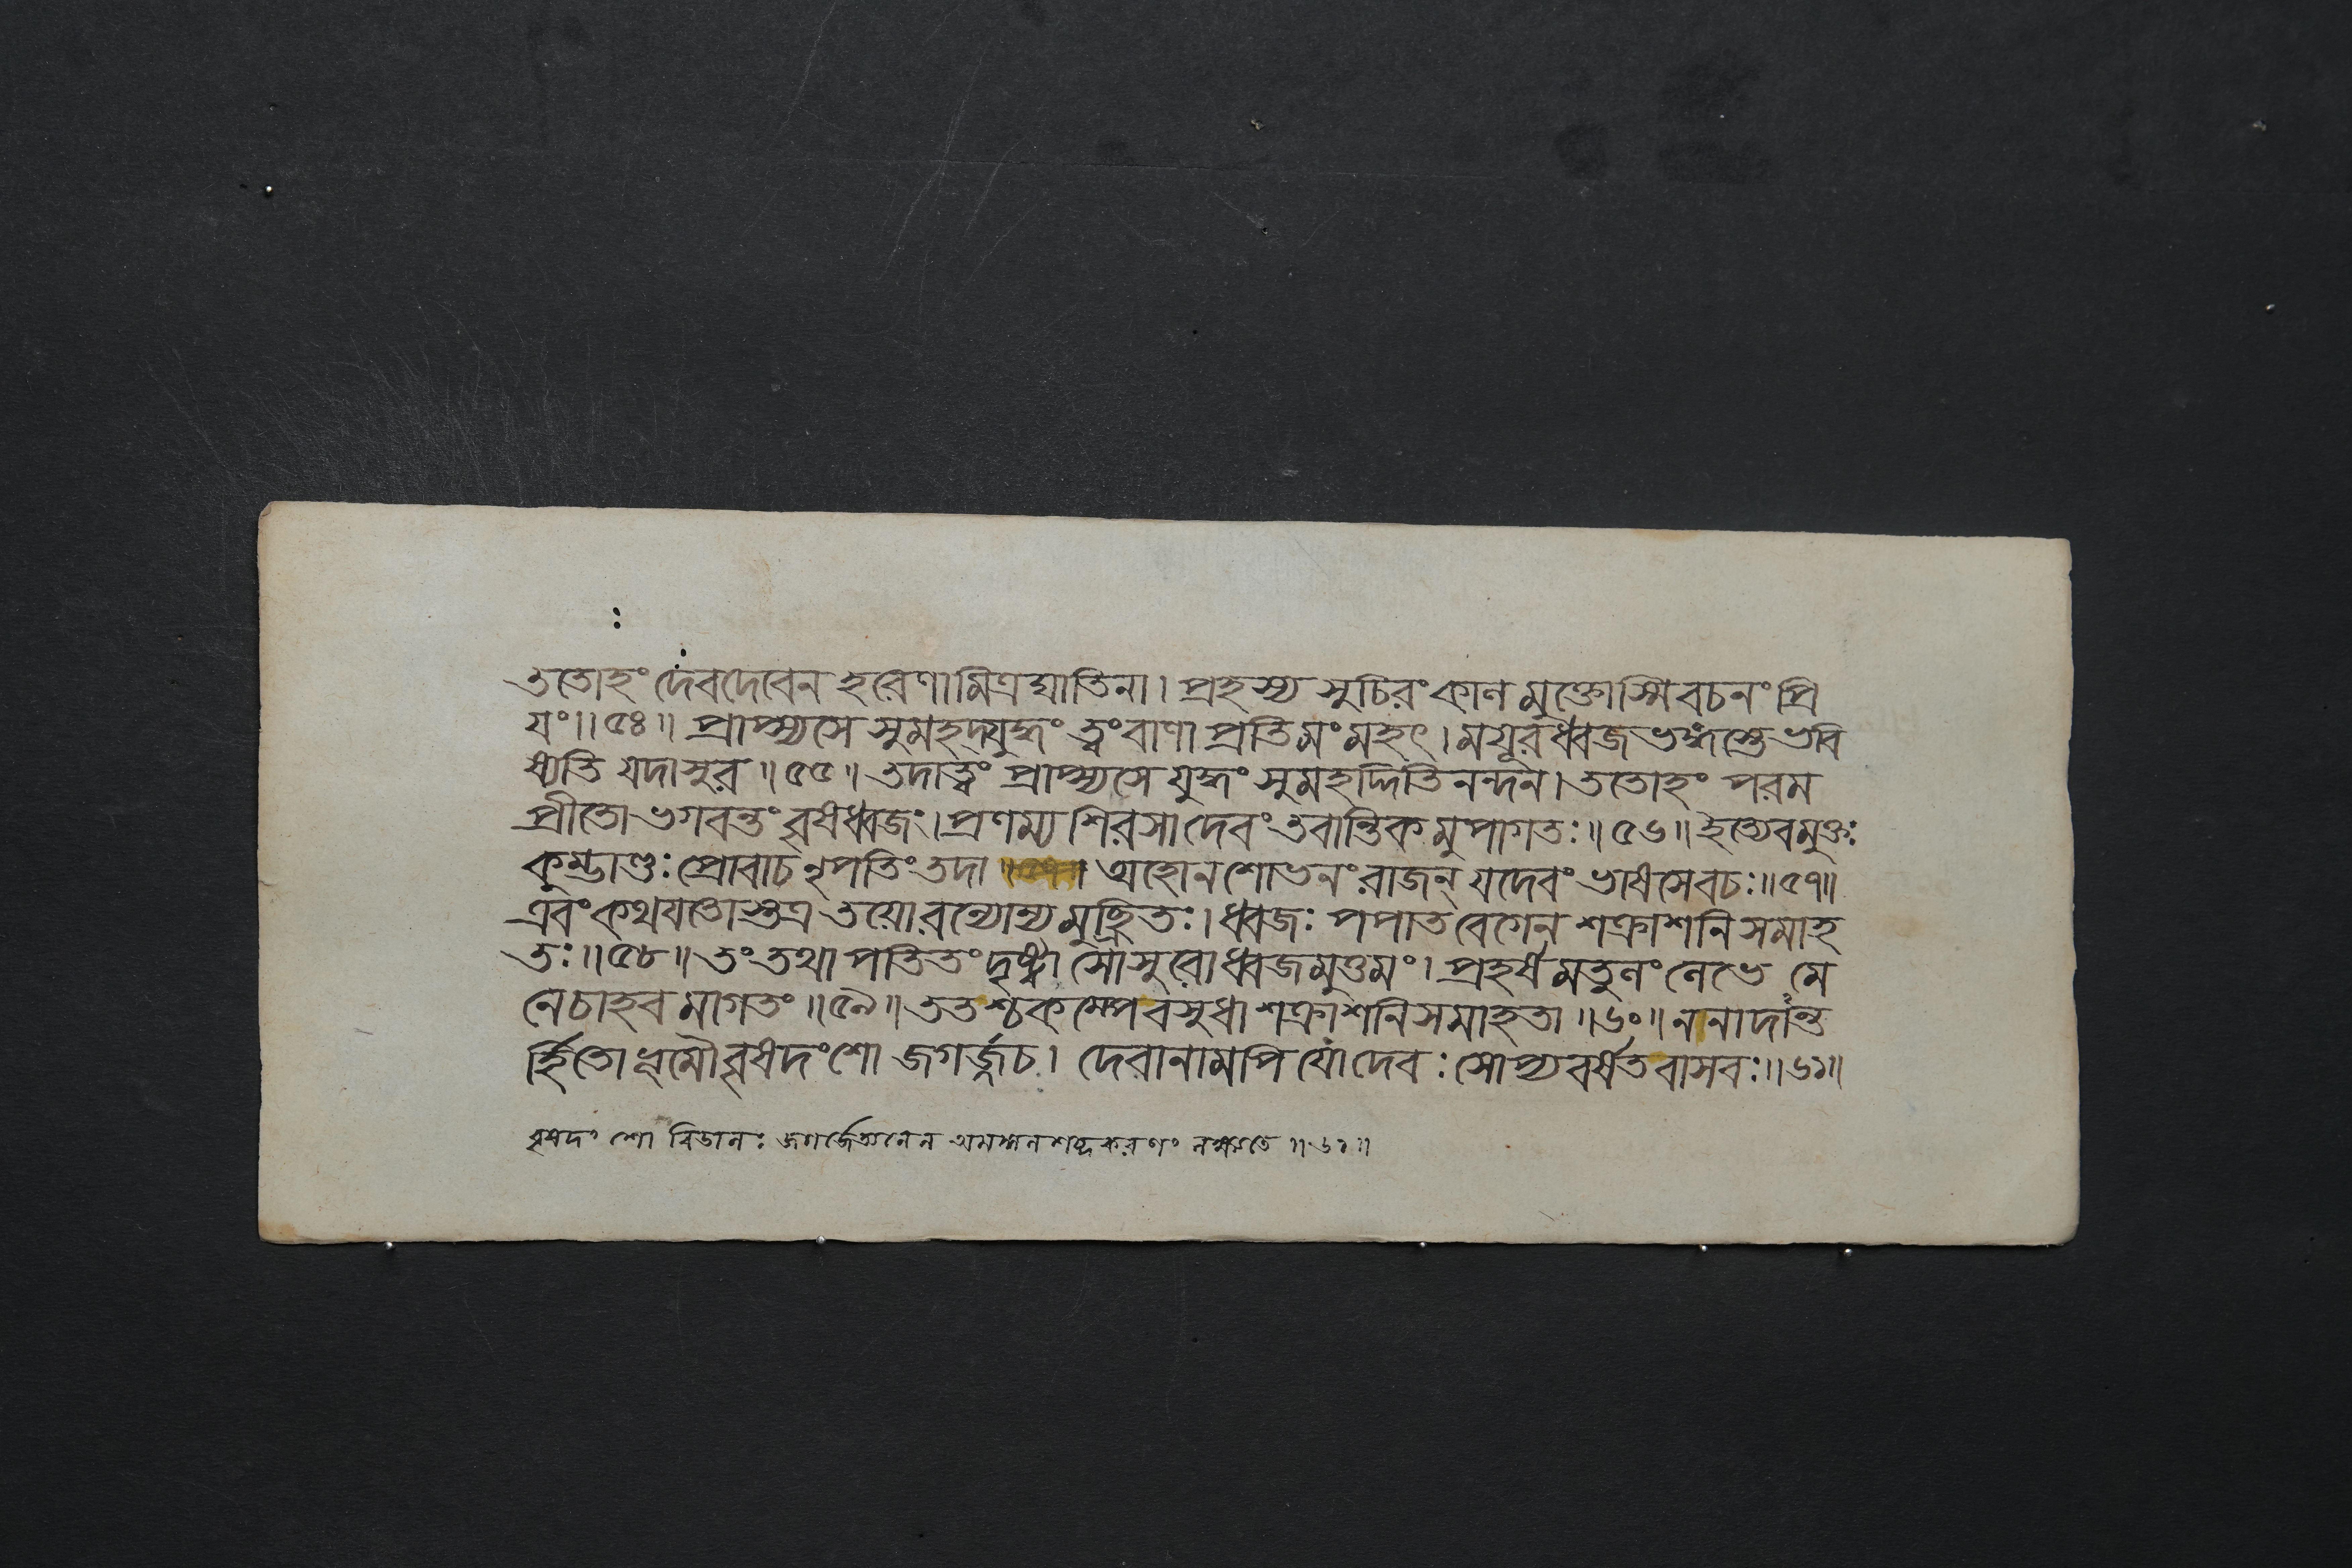 ততোহং দেবদেবেন হরেণামিত্রঘাতিনা। প্রহস্য সুচিরং কাল মুক্তোস্মি বচনং প্রি
যং॥৫৪॥ প্রাপ্স্যসে সুমহদ্যুদ্ধং ত্বং বাণা প্রতিমং মহৎ। ময়ূরধ্বজ ভঙ্গস্তে ভবি
ষ্যতি যদাসুর॥৫৫॥ তদাত্বং প্রাপ্স্যসে যুদ্ধং সুমহদ্দিতিনন্দন। ততোহং পরম
প্রীতো ভগবন্তং বৃষধ্বজং। প্রণম্য শিরসা দেবং তবান্তিকমুপাগতঃ॥৫৬॥ ইত্যেবমুক্তঃ
কুম্ভাণ্ডঃ প্রোবাচ নৃপতিং তদা অহোনশোভনং রাজন্ যদেবং ভাষসে বচঃ॥৫৭॥
এবং কথযতোস্তত্র তয়োরন্যোন্য মুচ্ছ্রিতঃ। ধ্বজঃ পপাত বেগেন শক্রাশনি সমাহ
তঃ॥৫৮॥ তং তথা পতিতং দৃষ্ট্বা সোসুরোধ্বজমুত্তমং। প্রহর্ষমতুলং লেভে মে
নে চাহব মাগতং॥৫৯॥ ততশ্চকম্পে বসুধা শক্রাশনিসমাহতা॥৬০॥ ননাদান্ত
র্হিতো ভূমৌ বৃষদংশো জগর্জ্জচ। দেবানামপি যো দেবঃ সোপ্যবর্ষত বাসবঃ॥৬১॥
বৃষদংশো বিডালঃ জগর্জেত্যনেন শব্দকরণং লক্ষ্যতে॥৬১॥